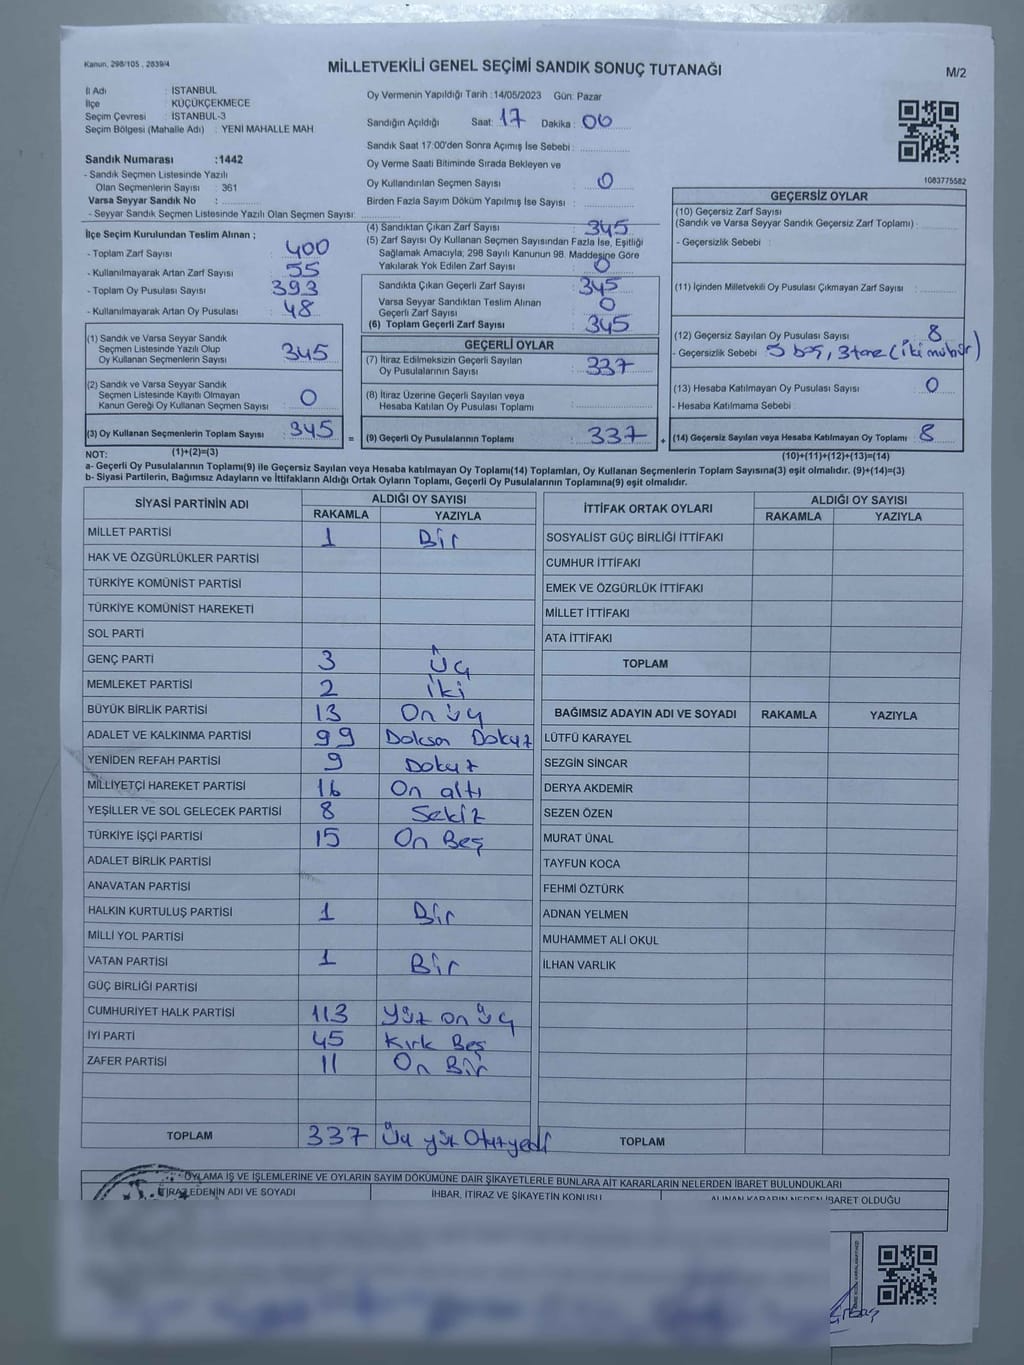 Kanun, 298/105 , 2839/4
MİLLETVEKİLİ GENEL SEÇİMİ SANDIK SONUÇ TUTANAĞI
M/2
İl Adı : İSTANBUL
İlçe : KÜÇÜKÇEKMECE
Seçim Çevresi : İSTANBUL-3
Seçim Bölgesi (Mahalle Adı) : YENİ MAHALLE MAH
Sandık Numarası :1442
- Sandık Seçmen Listesinde Yazılı
Olan Seçmenlerin Sayısı : 361
Varsa Seyyar Sandık No :
- Seyyar Sandık Seçmen Listesinde Yazılı Olan Seçmen Sayısı:
Oy Vermenin Yapıldığı Tarih :14/05/2023 Gün: Pazar
Sandığın Açıldığı Saat: 17 Dakika : 00
Sandık Saat 17:00'den Sonra Açımış İse Sebebi :
Oy Verme Saati Bitiminde Sırada Bekleyen ve
Oy Kullandırılan Seçmen Sayısı : 0
Birden Fazla Sayım Döküm Yapılmış İse Sayısı :
1083775582
İlçe Seçim Kurulundan Teslim Alınan ;
- Toplam Zarf Sayısı : 400
- Kullanılmayarak Artan Zarf Sayısı : 55
- Toplam Oy Pusulası Sayısı : 393
- Kullanılmayarak Artan Oy Pusulası : 48
(1) Sandık ve Varsa Seyyar Sandık
Seçmen Listesinde Yazılı Olup
Oy Kullanan Seçmenlerin Sayısı : 345
(2) Sandık ve Varsa Seyyar Sandık
Seçmen Listesinde Kayıtlı Olmayan
Kanun Gereği Oy Kullanan Seçmen Sayısı : 0
(3) Oy Kullanan Seçmenlerin Toplam Sayısı : 345 =
(1)+(2)=(3)
(4) Sandıktan Çıkan Zarf Sayısı : 345
(5) Zarf Sayısı Oy Kullanan Seçmen Sayısından Fazla İse, Eşitliği
Sağlamak Amacıyla; 298 Sayılı Kanunun 98. Maddesine Göre
Yakılarak Yok Edilen Zarf Sayısı : 0
Sandıkta Çıkan Geçerli Zarf Sayısı : 345
Varsa Seyyar Sandıktan Teslim Alınan
Geçerli Zarf Sayısı : 0
(6) Toplam Geçerli Zarf Sayısı : 345
GEÇERLİ OYLAR
(7) İtiraz Edilmeksizin Geçerli Sayılan
Oy Pusulalarının Sayısı : 337
(8) İtiraz Üzerine Geçerli Sayılan veya
Hesaba Katılan Oy Pusulası Toplamı :
(9) Geçerli Oy Pusulalarının Toplamı : 337 +
GEÇERSİZ OYLAR
(10) Geçersiz Zarf Sayısı
(Sandık ve Varsa Seyyar Sandık Geçersiz Zarf Toplamı) :
- Geçersizlik Sebebi :
(11) İçinden Milletvekili Oy Pusulası Çıkmayan Zarf Sayısı :
(12) Geçersiz Sayılan Oy Pusulası Sayısı : 8
- Geçersizlik Sebebi : 5 boş, 3 tane (iki mühür)
(13) Hesaba Katılmayan Oy Pusulası Sayısı : 0
- Hesaba Katılmama Sebebi :
(14) Geçersiz Sayılan veya Hesaba Katılmayan Oy Toplamı : 8
(10)+(11)+(12)+(13)=(14)
NOT:
a- Geçerli Oy Pusulalarının Toplamı(9) ile Geçersiz Sayılan veya Hesaba katılmayan Oy Toplamı(14) Toplamları, Oy Kullanan Seçmenlerin Toplam Sayısına(3) eşit olmalıdır. (9)+(14)=(3)
b- Siyasi Partilerin, Bağımsız Adayların ve İttifakların Aldığı Ortak Oyların Toplamı, Geçerli Oy Pusulalarının Toplamına(9) eşit olmalıdır.
SİYASİ PARTİNİN ADI ALDIĞI OY SAYISI
RAKAMLA YAZIYLA
MİLLET PARTİSİ 1 Bir
HAK VE ÖZGÜRLÜKLER PARTİSİ
TÜRKİYE KOMÜNİST PARTİSİ
TÜRKİYE KOMÜNİST HAREKETİ
SOL PARTİ
GENÇ PARTİ 3 Üç
MEMLEKET PARTİSİ 2 iki
BÜYÜK BİRLİK PARTİSİ 13 On üç
ADALET VE KALKINMA PARTİSİ 99 Doksan Dokuz
YENİDEN REFAH PARTİSİ 9 Dokuz
MİLLİYETÇİ HAREKET PARTİSİ 16 On altı
YEŞİLLER VE SOL GELECEK PARTİSİ 8 Sekiz
TÜRKİYE İŞÇİ PARTİSİ 15 On Beş
ADALET BİRLİK PARTİSİ
ANAVATAN PARTİSİ
HALKIN KURTULUŞ PARTİSİ 1 Bir
MİLLİ YOL PARTİSİ
VATAN PARTİSİ 1 Bir
GÜÇ BİRLİĞİ PARTİSİ
CUMHURİYET HALK PARTİSİ 113 Yüz on üç
İYİ PARTİ 45 Kırk Beş
ZAFER PARTİSİ 11 On Bir
TOPLAM 337 Üç yüz Otuz yedi
İTTİFAK ORTAK OYLARI ALDIĞI OY SAYISI
RAKAMLA YAZIYLA
SOSYALİST GÜÇ BİRLİĞİ İTTİFAKI
CUMHUR İTTİFAKI
EMEK VE ÖZGÜRLÜK İTTİFAKI
MİLLET İTTİFAKI
ATA İTTİFAKI
TOPLAM
BAĞIMSIZ ADAYIN ADI VE SOYADI RAKAMLA YAZIYLA
LÜTFÜ KARAYEL
SEZGİN SİNCAR
DERYA AKDEMİR
SEZEN ÖZEN
MURAT ÜNAL
TAYFUN KOCA
FEHMİ ÖZTÜRK
ADNAN YELMEN
MUHAMMET ALİ OKUL
İLHAN VARLIK
TOPLAM
OYLAMA İŞ VE İŞLEMLERİNE VE OYLARIN SAYIM DÖKÜMÜNE DAİR ŞİKAYETLERLE BUNLARA AİT KARARLARIN NELERDEN İBARET BULUNDUKLARI
İTİRAZ EDENİN ADI VE SOYADI İHBAR, İTİRAZ VE ŞİKAYETİN KONUSU ALINAN KARARIN NEDEN İBARET OLDUĞU